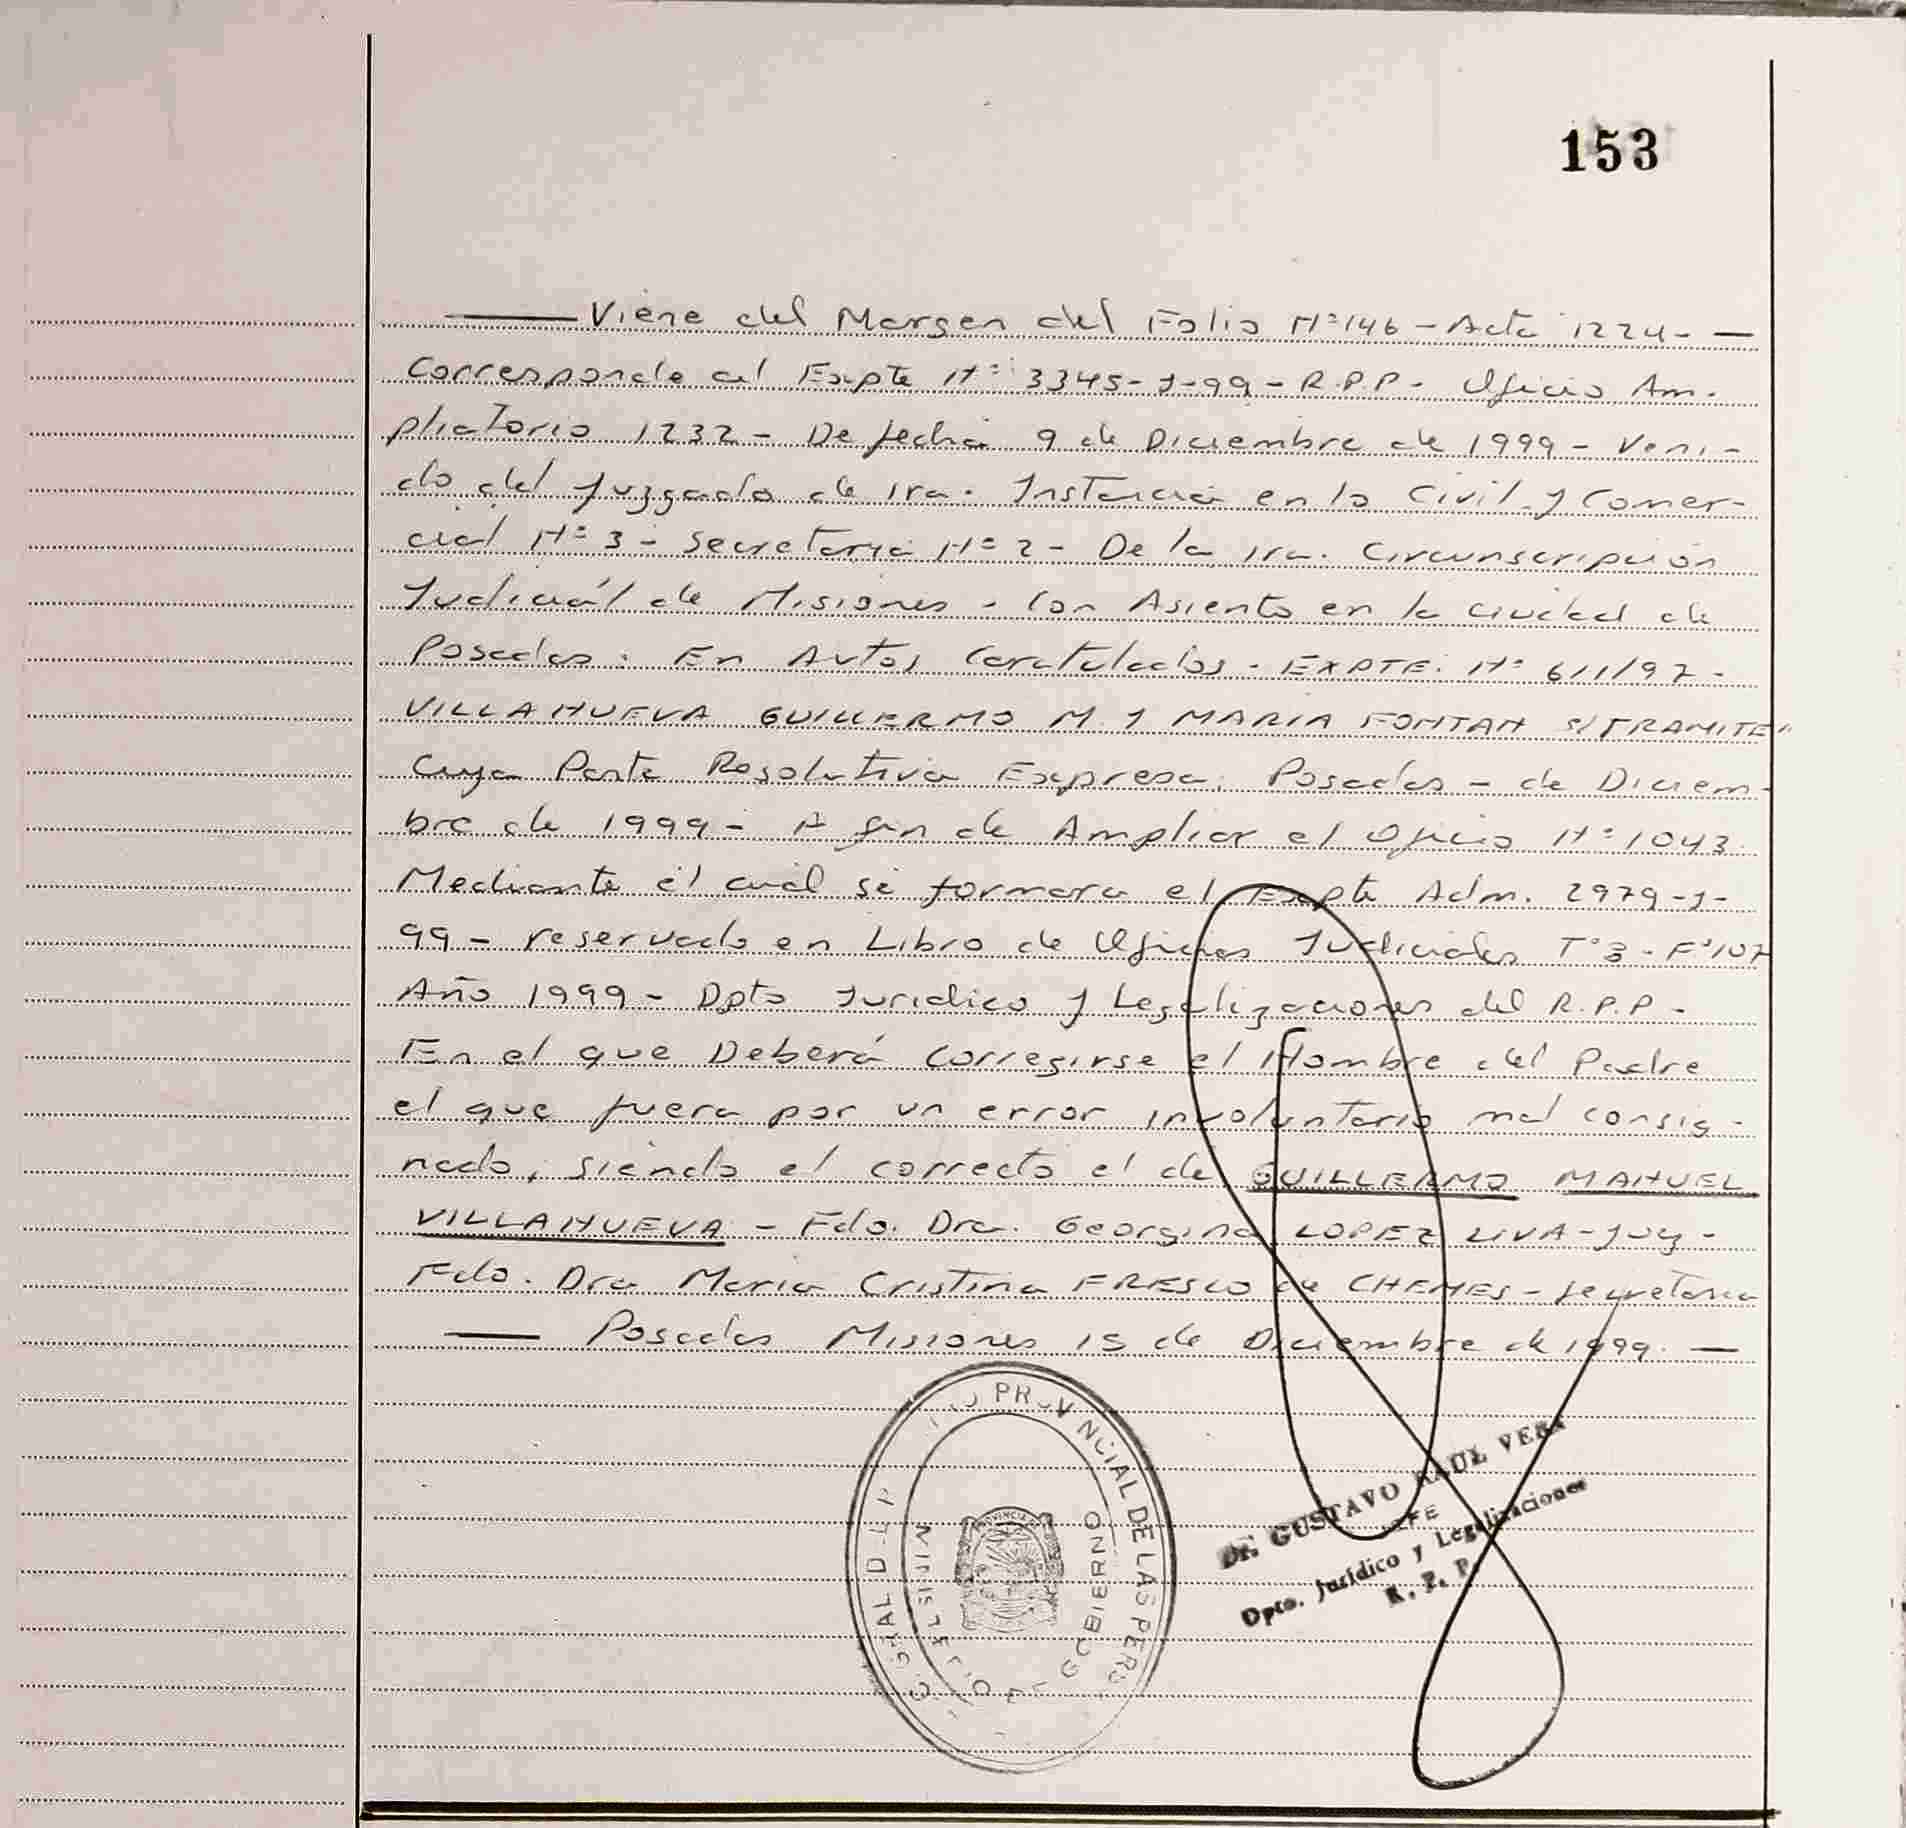 153
Viene del Margen del Folio Nº 146 - Acta 1224 -
Corresponde al Expte Nº 3345-J-99 - R.P.P. - Oficio Am-
pliatorio 1232 - De fecha 9 de Diciembre de 1999 - Veni-
do del Juzgado de 1ra. Instancia en lo Civil y Comer-
cial Nº 3 - Secretaria Nº 2 - De la 1ra. Circunscripción
Judiciál de Misiones - Con Asiento en la Ciudad de
Posadas. En Autos Caratulados - EXPTE. Nº 611/97 -
VILLANUEVA GUILLERMO M. Y MARIA FONTAN S/TRAMITE"
Cuya Parte Resolutiva Expresa: Posadas - de Diciem-
bre de 1999 - A fin de Ampliar el Oficio Nº 1043
Mediante el cuál se formara el Expte Adm. 2979-J-
99 - reservado en Libro de Oficios Judiciales Tº 3 - Fº 107
Año 1999 - Dpto Juridico y Legalizaciones del R.P.P. -
En el que Deberá Corregirse el Nombre del Padre
el que fuera por un error involuntario mal consig-
nado, siendo el correcto el de GUILLERMO MANUEL
VILLANUEVA - Fdo. Dra. Georgina LOPEZ LIVA - Juez -
Fdo. Dra Maria Cristina FRESCO de CHEMES - Secretaria
Posadas Misiones 15 de Diciembre de 1999.
PROVINCIAL DE LAS PERS
GOBIERNO
PROVINCIA
Dr. GUSTAVO RAUL VERA
JEFE
Dpto. Jurídico y Legalizaciones
R. P. P.